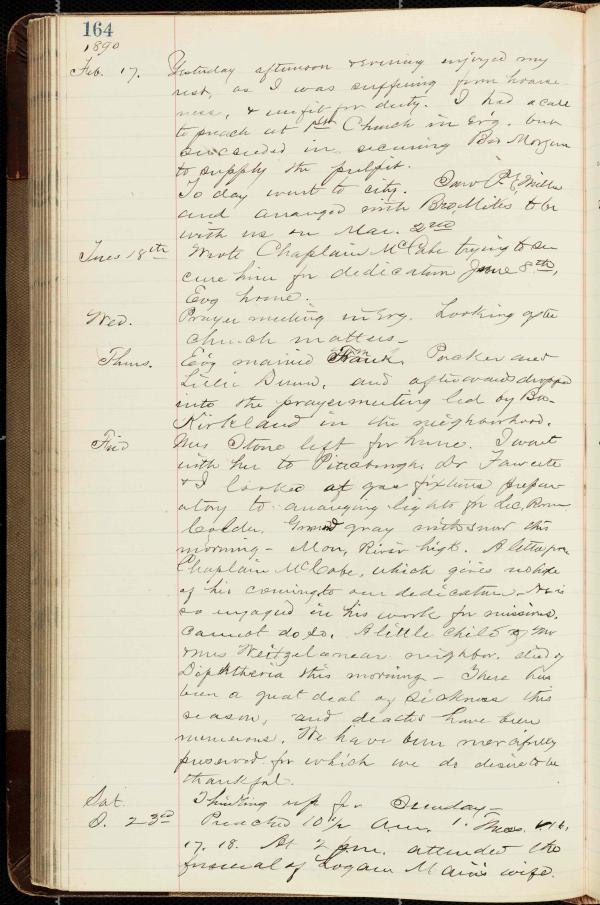 164
1890
Feb. 17. Yesterday afternoon & evening enjoyed my
rest, as I was suffering from hoarse
ness, & unfit for duty. I had a call
to preach at 1st Church in Ev'g. but
succeeded in securing Bro Morgan
to supply the pulpit.
To day went to city. Saw
and arranged with Bro, Miles to be
with us on Mar. 2nd
Tues 18th Wrote Chaplain McCabe trying to se
cure him for dedication June 8th,
Evg home.
Wed. Prayer meeting in Evg. Looking after
church matters_
Thurs. Ev'g married Frank Packer and
Lillie Dunn, and afterwards dropped
into the prayermeeting led by Bro.
Kirkland in the neighborhood.
Frid Mrs Stone left for home. I went
with her to Pittsburgh. Dr Fawcette
& I looked at gas fixtures prepar
atory to arranging lights for Lec, Room
Colder. Ground gray with snow this
morning - Mon, River high. A letter from
Chaplain McCabe, which gives no hope
of his coming to our dedication. He is
so engaged in his work for missions,
cannot do so. A little child of Mr
& Mrs Weitzel a near neighbor. died of
Diphtheria this morning - There has
been a great deal of sickness this
season, and deaths have been
numerous. We have been mercifully
preserved for which we do desire to be
thankful.
Sat. Thinking up for Sunday -
S. 23rd Preached 10½ Am. 1. Thess. 16,
17. 18. At 2 pm. attended the
funeral of Logan Main's wife.